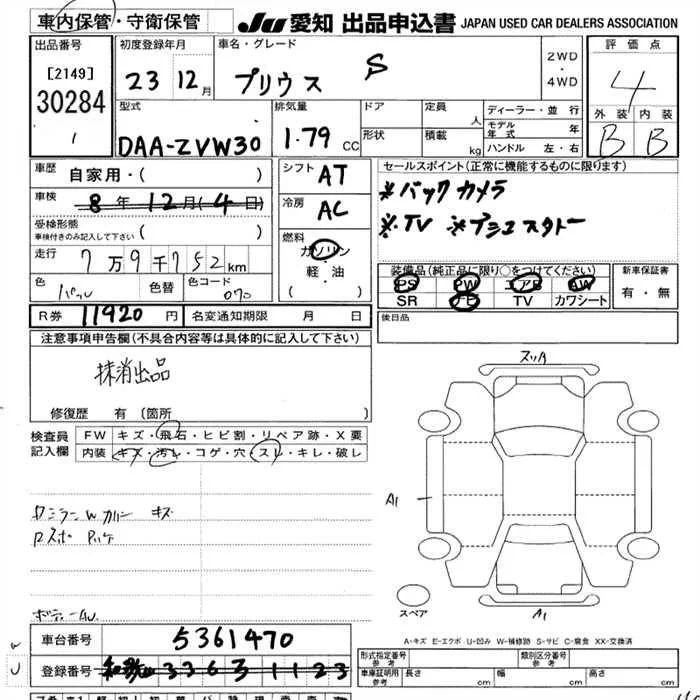 車内保管・守衛保管
JU 愛知 出品申込書 JAPAN USED CAR DEALERS ASSOCIATION
出品番号
[2149]
30284
1
初度登録年月
23 12月
車名・グレード
プリウス S
2WD
・
4WD
評価点
4
外装 内装
B B
型式
DAA-ZVW30
排気量
1.79 CC
ドア
形状
定員 人
積載 kg
ディーラー・並行
モデル年式 年
ハンドル 左・右
車歴 自家用・( )
車検 8年12月(4日)
受検形態
車検付きのみ記入して下さい ( )
走行 7万9千752km
色 パール 色替 色コード 070
シフト AT
冷房 AC
燃料
ガソリン
・
軽・油
( )
セールスポイント(正常に機能するものに限ります)
※バックカメラ
※TV ※プシュスタトー
装備品(純正品に限り○をつけてください)
PS PW エアB AW
SR ナビ TV カワシート
新車保証書
有・無
R券 11920円 名変通知期限 月 日
後日品
注意事項申告欄(不具合内容等は具体的に記入して下さい)
抹消出品
修復歴 有(箇所 )
検査員記入欄
FW キズ・飛石・ヒビ割・リペア跡・X要
内装 キズ・汚レ・コゲ・穴・スレ・キレ・破レ
スリ傷
A1
A1
スペア
A-キズ E-エクボ U-凹み W-補修跡 S-サビ C-腐食 XX-交換済
車台番号 5361470
登録番号 3363 1123
形式指定番号 参考
類別区分番号 参考
車庫証明用 参考 長さ cm 幅 cm 高さ cm